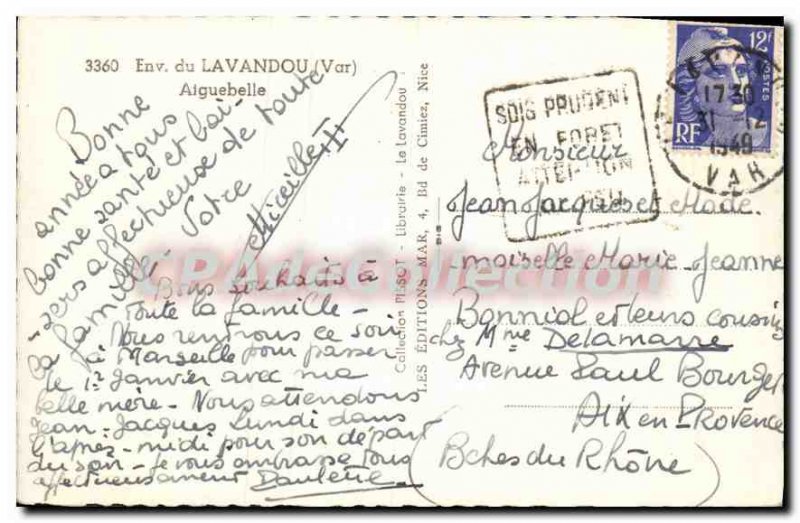 3360 Env. du LAVANDOU (Var)
Aiguebelle
Bonne
année à tous
bonne santé et bai-
sers affectueuse de toute
la famille Votre
Mireille
Bons souhaits à
toute la famille -
Nous rentrons ce soir
à Marseille pour passer
le 1er Janvier avec ma
belle mère - Nous attendons
Jean-Jacques Lundi dans
l'après-midi pour son départ
du soir - Je vous embrasse tous
affectueusement Paulette
Collection PISSOT - Librairie - Le Lavandou
LES ÉDITIONS MAR, 4, Bd de Cimiez, Nice
SOIS PRUDENT
EN FORET
ATTENTION
AU FEU
12F
POSTES
RF
17 30
31 12
1949
VAR
Monsieur
Jean Jacques et Made
-moiselle Marie Jeanne
Bonniol et leurs cousins
chez Mme Delamarre
Avenue Paul Bourget
Aix en Provence
(Bches du Rhône)
CPAdeCollection